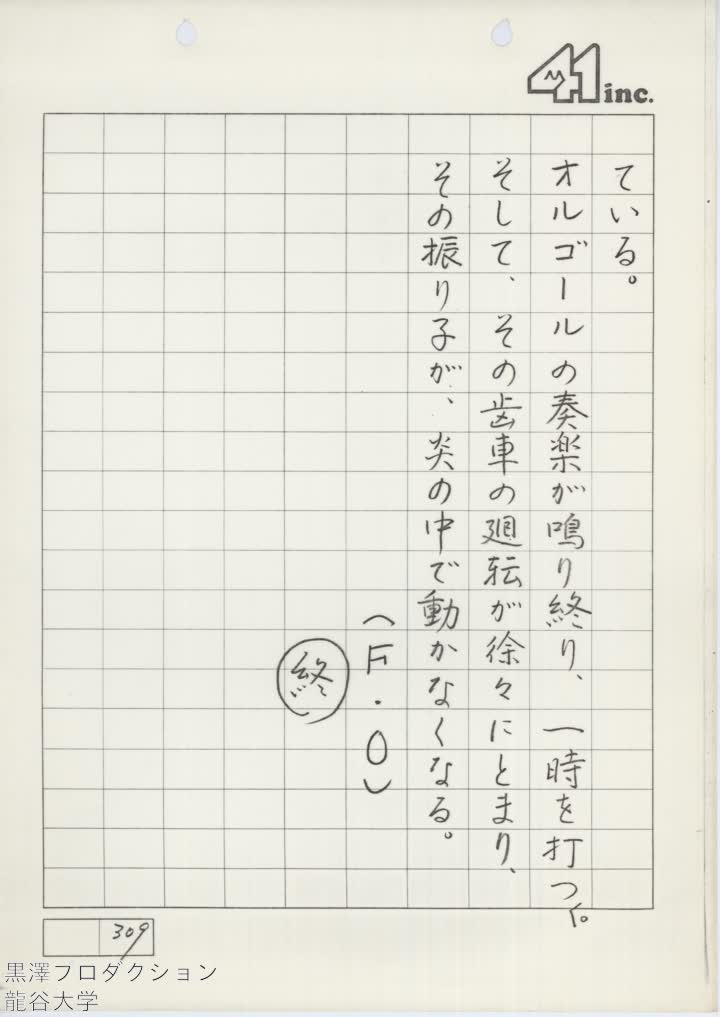 41 inc.
ている。
オルゴールの奏楽が鳴り終り、一時を打つ。
そして、その歯車の廻転が徐々にとまり、
その振り子が、炎の中で動かなくなる。
（F・O）
終
309
黒澤フロダクション
龍谷大学